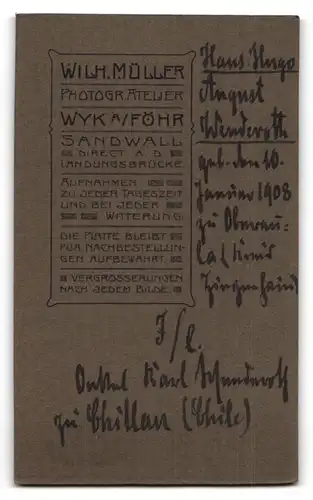 WILH. MÜLLER
PHOTOGR. ATELIER
WYK A/FÖHR
SANDWALL
DIRECT A. D.
LANDUNGSBRÜCKE.
AUFNAHMEN
ZU JEDER TAGESZEIT
UND BEI JEDER
WITTERUNG.
DIE PLATTE BLEIBT
FÜR NACHBESTELLUN-
GEN AUFBEWAHRT.
VERGRÖSSERUNGEN
NACH JEDEM BILDE.
Hans Hugo
August
Wenderoth
geb. den 10.
Januar 1908
zu Oberau-
la Kreis
Ziegenhain
Onkel Karl Wenderoth
zu Chillan (Chile)